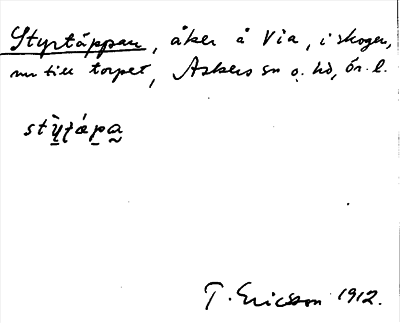 Styrtäppan, åker å Via, i skogen,
nu till torpet, Askers sn o. hd, Ör. l.
stỳṭápa
T. Ericsson 1912.